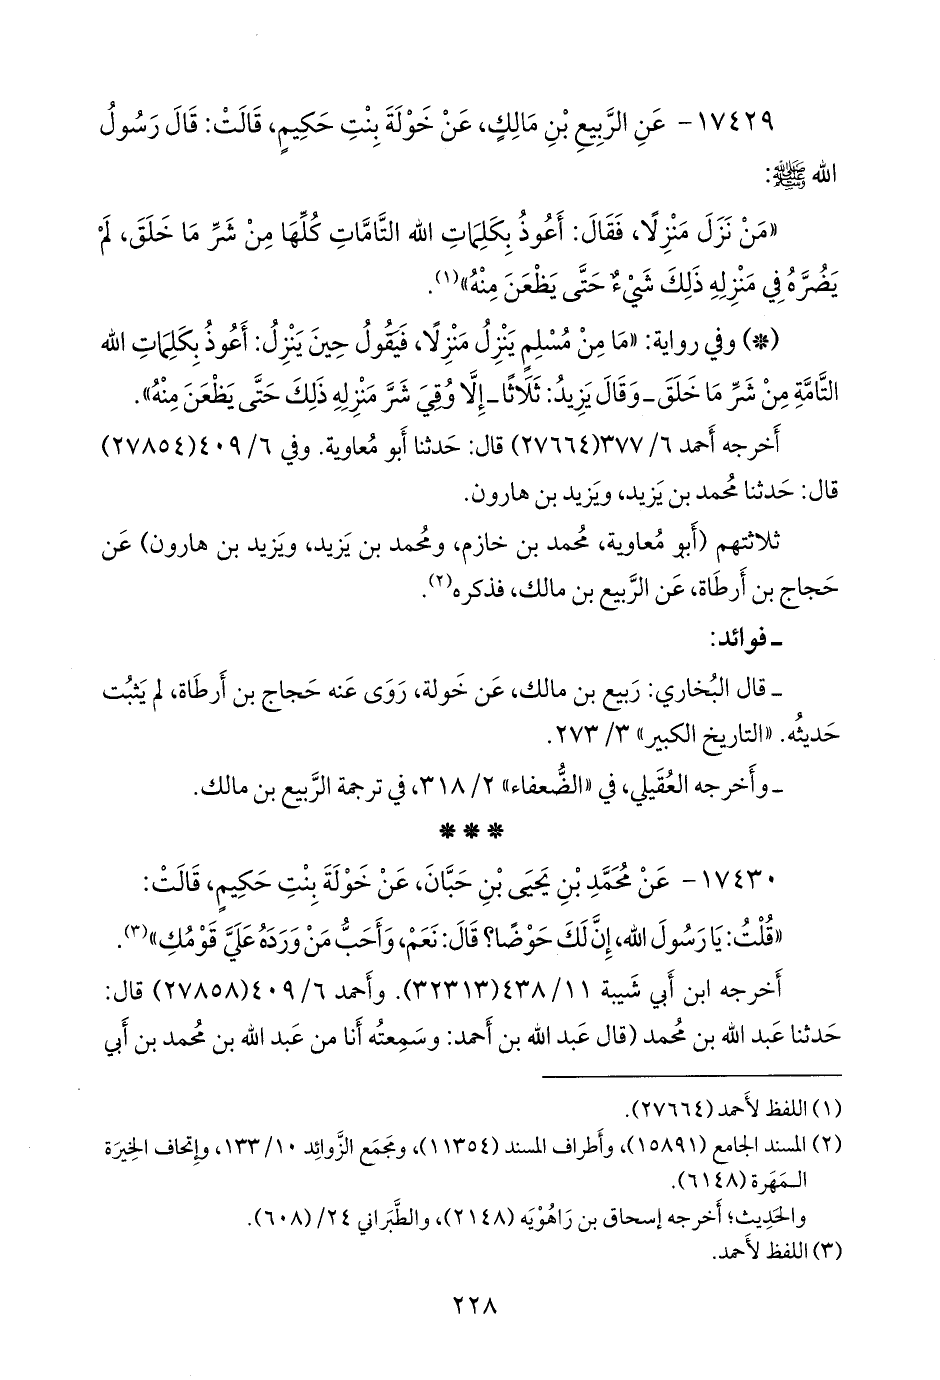 ١٧٤٢٩- عَنِ الرَّبِيعِ بْنِ مَالِكٍ، عَنْ خَوْلَةَ بِنْتِ حَكِيمٍ، قَالَتْ: قَالَ رَسُولُ
الله ﷺ:
«مَنْ نَزَلَ مَنْزِلًا، فَقَالَ: أَعُوذُ بِكَلِمَاتِ الله التَّامَّاتِ كُلِّهَا مِنْ شَرِّ مَا خَلَقَ، لَمْ
يَضُرَّهُ فِي مَنْزِلِهِ ذَلِكَ شَيْءٌ حَتَّى يَظْعَنَ مِنْهُ»(١).
(*) وفي رواية: «مَا مِنْ مُسْلِمٍ يَنْزِلُ مَنْزِلًا، فَيَقُولُ حِينَ يَنْزِلُ: أَعُوذُ بِكَلِمَاتِ الله
التَّامَّةِ مِنْ شَرِّ مَا خَلَقَ ـ وَقَالَ يَزِيدُ: ثَلَاثًا ـ إِلَّا وُقِيَ شَرَّ مَنْزِلِهِ ذَلِكَ حَتَّى يَظْعَنَ مِنْهُ».
أَخرجه أَحمد ٦/ ٣٧٧(٢٧٦٦٤) قال: حَدثنا أَبو مُعاوية. وفي ٦/ ٤٠٩(٢٧٨٥٤)
قال: حَدثنا مُحمد بن يَزيد، ويَزيد بن هارون.
ثلاثتهم (أَبو مُعاوية، مُحمد بن خازم، ومُحمد بن يَزيد، ويَزيد بن هارون) عَن
حَجاج بن أَرطَاة، عَن الرَّبيع بن مالك، فذكره(٢).
ـ فوائد:
ـ قال البُخاري: رَبيع بن مالك، عَن خَولة، رَوَى عَنه حَجاج بن أَرطَاة، لم يَثبُت
حَديثُه. «التاريخ الكبير» ٣/ ٢٧٣.
ـ وأَخرجه العُقيلي، في «الضُّعفاء» ٢/ ٣١٨، في ترجمة الرَّبيع بن مالك.
* * *
١٧٤٣٠- عَنْ مُحَمَّدِ بْنِ يَحيَى بْنِ حَبَّانَ، عَنْ خَوْلَةَ بِنْتِ حَكِيمٍ، قَالَتْ:
«قُلْتُ: يَا رَسُولَ الله، إِنَّ لَكَ حَوْضًا؟ قَالَ: نَعَمْ، وَأَحَبُّ مَنْ وَرَدَهُ عَلَيَّ قَوْمُكِ»(٣).
أَخرجه ابن أَبي شَيبة ١١/ ٤٣٨(٣٢٣١٣). وأَحمد ٦/ ٤٠٩(٢٧٨٥٨) قال:
حَدثنا عَبد الله بن مُحمد (قال عَبد الله بن أَحمد: وسَمِعتُه أَنا من عَبد الله بن مُحمد بن أَبي
(١) اللفظ لأَحمد (٢٧٦٦٤).
(٢) المسند الجامع (١٥٨٩١)، وأَطراف المسند (١١٣٥٤)، ومَجمَع الزَّوائِد ١٠/ ١٣٣، وإِتحاف الخِيرَة
الـمَهَرة (٦١٤٨).
والحَدِيث؛ أَخرجه إِسحاق بن رَاهُوْيَه (٢١٤٨)، والطَّبَراني ٢٤/ (٦٠٨).
(٣) اللفظ لأَحمد.
٢٢٨